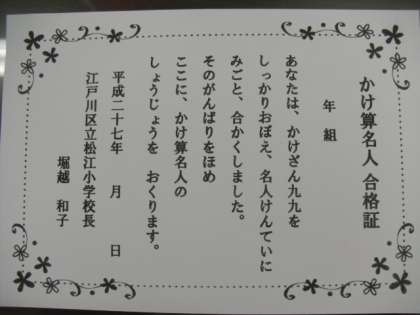 かけ算名人 合格証
年 組
あなたは、かけざん九九を
しっかりおぼえ、名人けんていに
みごと、合かくしました。
そのがんばりをほめ
ここに、かけ算名人の
しょうじょうを おくります。
平成二十七年 月 日
江戸川区立松江小学校長
堀越 和子